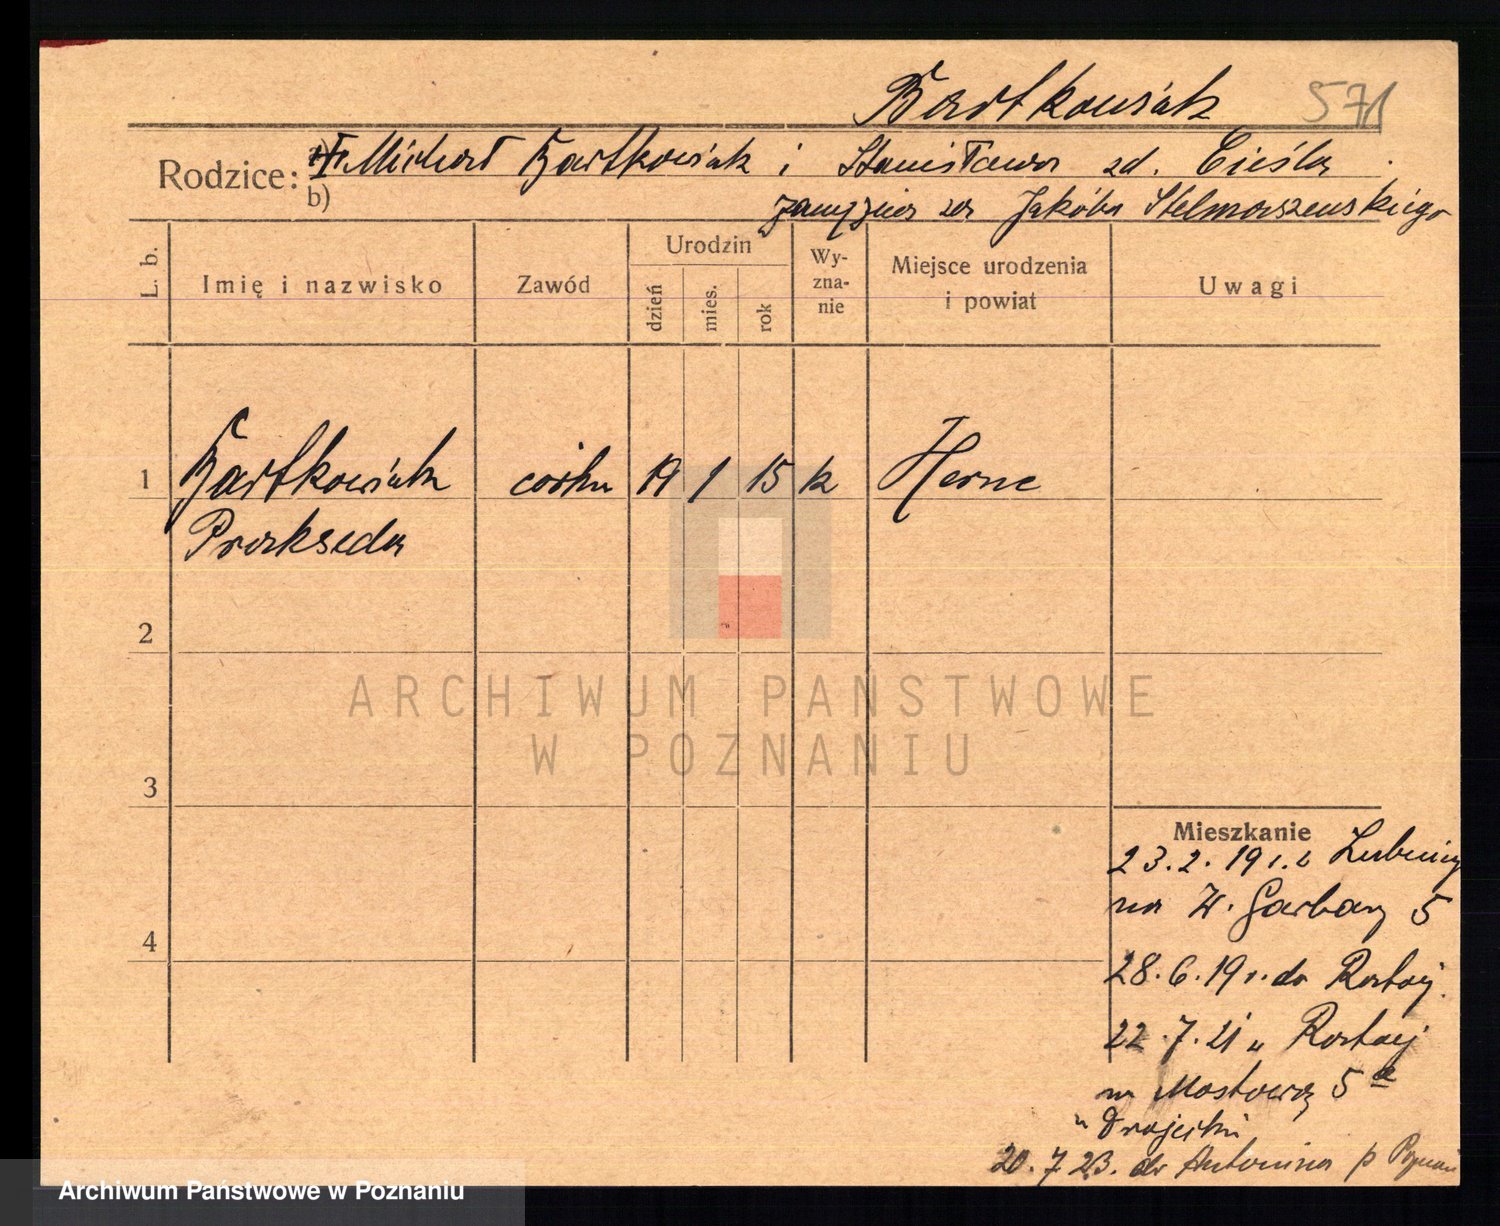 Bartkowiak 571
Rodzice: Michał Bartkowiak i Stanisława zd. Cieśla
b) zamężna za Jakóba Stelmaszewskiego
L. b.
Imię i nazwisko
Zawód
Urodzin
dzień
mies.
rok
Wy-
zna-
nie
Miejsce urodzenia
i powiat
Uwagi
1 Bartkowiak córka 19 1 15 k Herne
Prakseda
2
ARCHIWUM PAŃSTWOWE
W POZNANIU
3
Mieszkanie
23.2.19 r. z
na W. Garbary 5
4
28.6.19 r. do Rataj
22.7.21 u Rataj
na Mostową 5a
u
20.7.23. do Antonina p Poznań
Archiwum Państwowe w Poznaniu